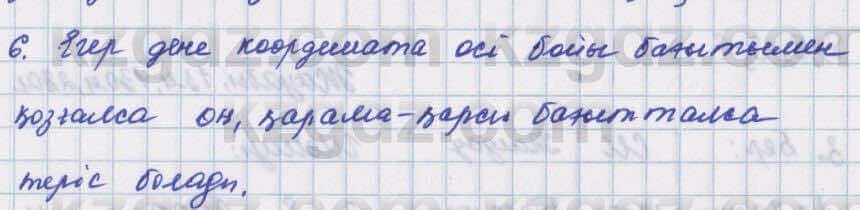 6. Егер дене координата осі бойы бағытымен
қозғалса он, қарама-қарсы бағытталса
теріс болады.